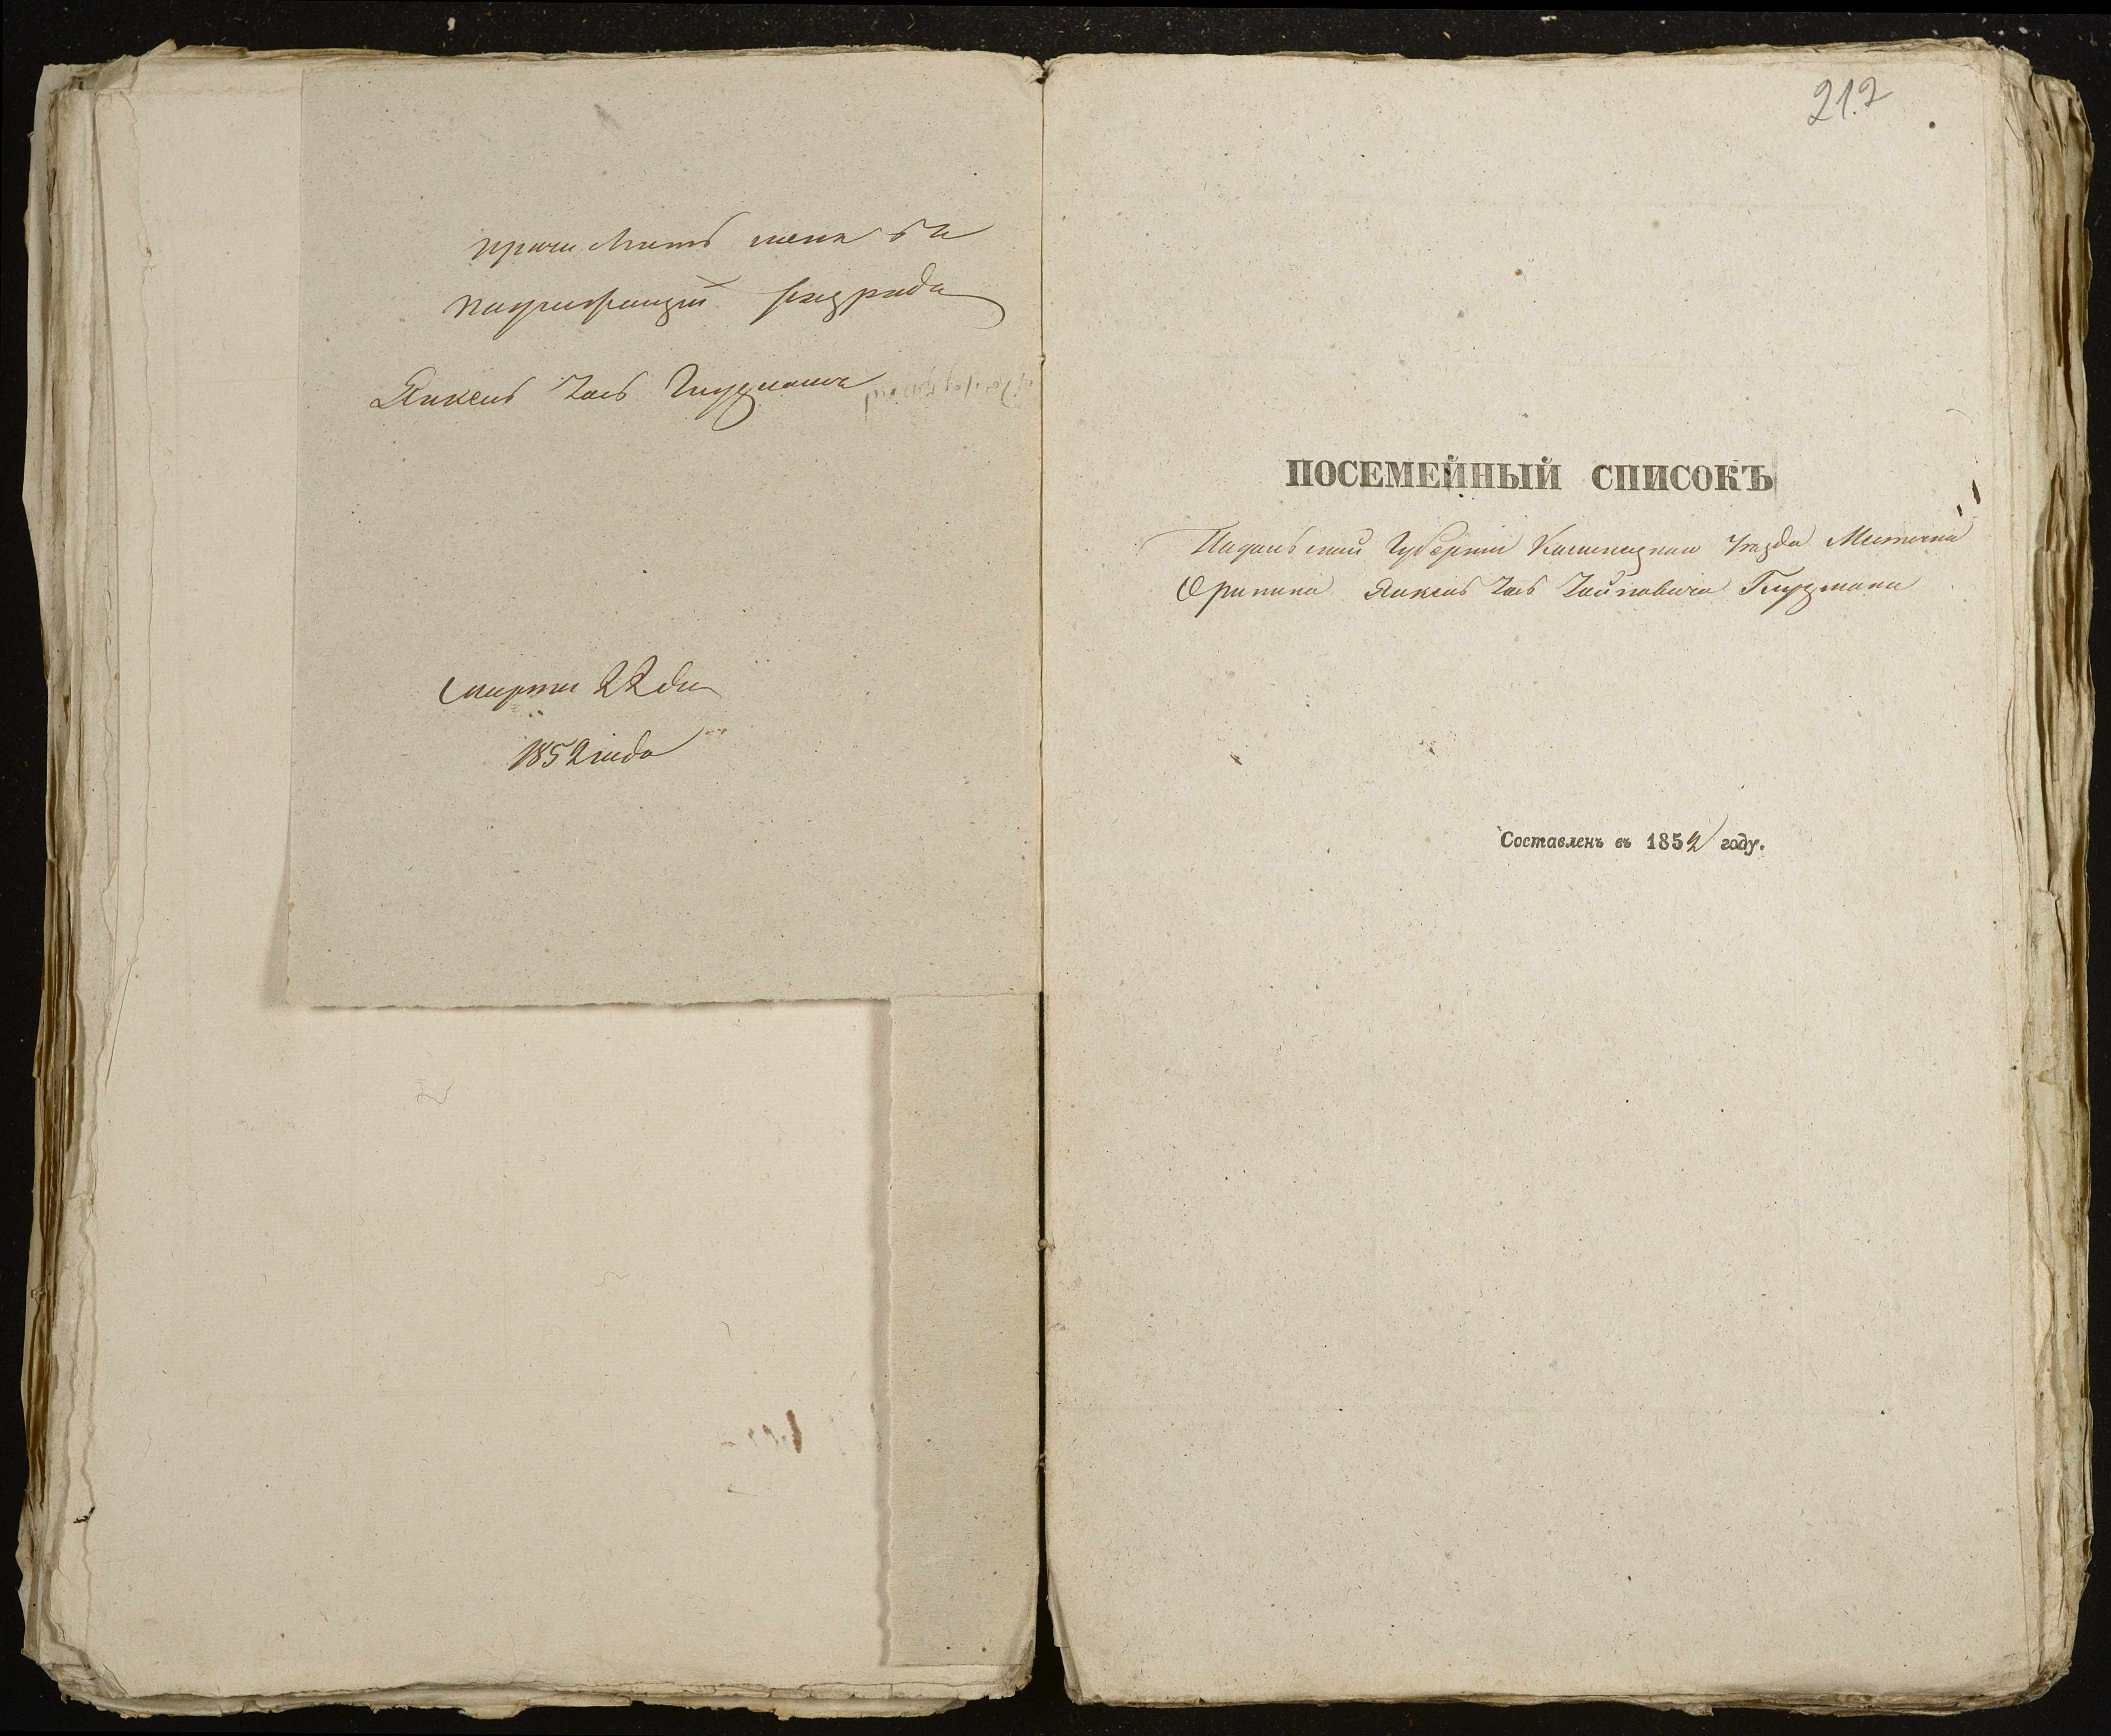 причислить меня въ
надлежащій разрядъ
Янкель Іось Глузманъ
Марта 22 дня
1852 года
212
ПОСЕМЕЙНЫЙ СПИСОКЪ
Подольской Губерніи Каменецкаго Уѣзда Мѣстечка
Оринина Янкель Іось Глузмана
Составленъ въ 1852 году.